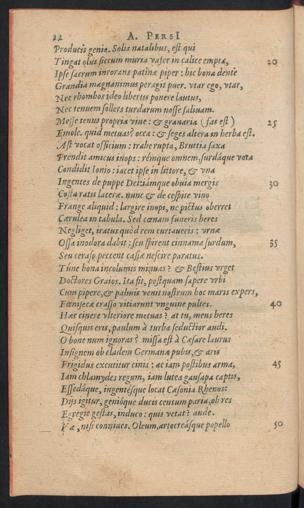 22 A. PERSI
Producis genio. Solis natalibus, est qui
Tingat olus siccum muria vafer in calice empta, 20
Ipse sacrum inrorans patinæ piper: hic bona dente
Grandia magnanimus peragit puer. vtar ego, vtar,
Nec rhombos ideo libertis ponere lautus,
Nec tenuem sollers turdarum nosse saliuam.
Messe tenus propria viue: & granaria (fas est) 25
Emole. quid metuas? occa: & seges altera in herba est.
Ast vocat officium: trabe rupta, Bruttia saxa
Prendit amicus inops: rémque omnem, surdáque vota
Condidit Ionio: iacet ipse in littore, & vna
Ingentes de puppe Dei: iámque obuia mergis 30
Costa ratis laceræ. nunc & de cespite viuo
Frange aliquid: largire inopi, ne pictus oberret
Cærulea in tabula. Sed cœnam funeris heres
Negliget, iratus quòd rem curtaueris: vrnæ
Ossa inodora dabit: seu spirent cinnama surdum, 35
Seu ceraso peccent casiæ nescire paratus.
Túne bona incolumis minuas? & Bestius vrget
Doctores Graios, Ita fit, postquam sapere vrbi
Cum pipere, & palmis venit nostrum hoc maris expers,
Fœnisecæ crasso vitiarunt vnguine pultes. 40
Hæc cinere vlterior metuas? at tu, meus heres
Quisquis eris, paulùm à turba seductior audi.
O bone num ignoras? missa est à Cæsare laurus
Insignem ob cladem Germanæ pubis, & aris
Frigidus excutitur cinis: ac iam postibus arma, 45
Iam chlamydes regum, iam lutea gausapa captis,
Essedáque, ingentésque locat Cæsonia Rhenos.
Diis igitur, genióque ducis centum paria, ob res
Egregie gestas, induco: quis vetat? aude.
Væ, nisi conniues. Oleum, artocreásque popello 50